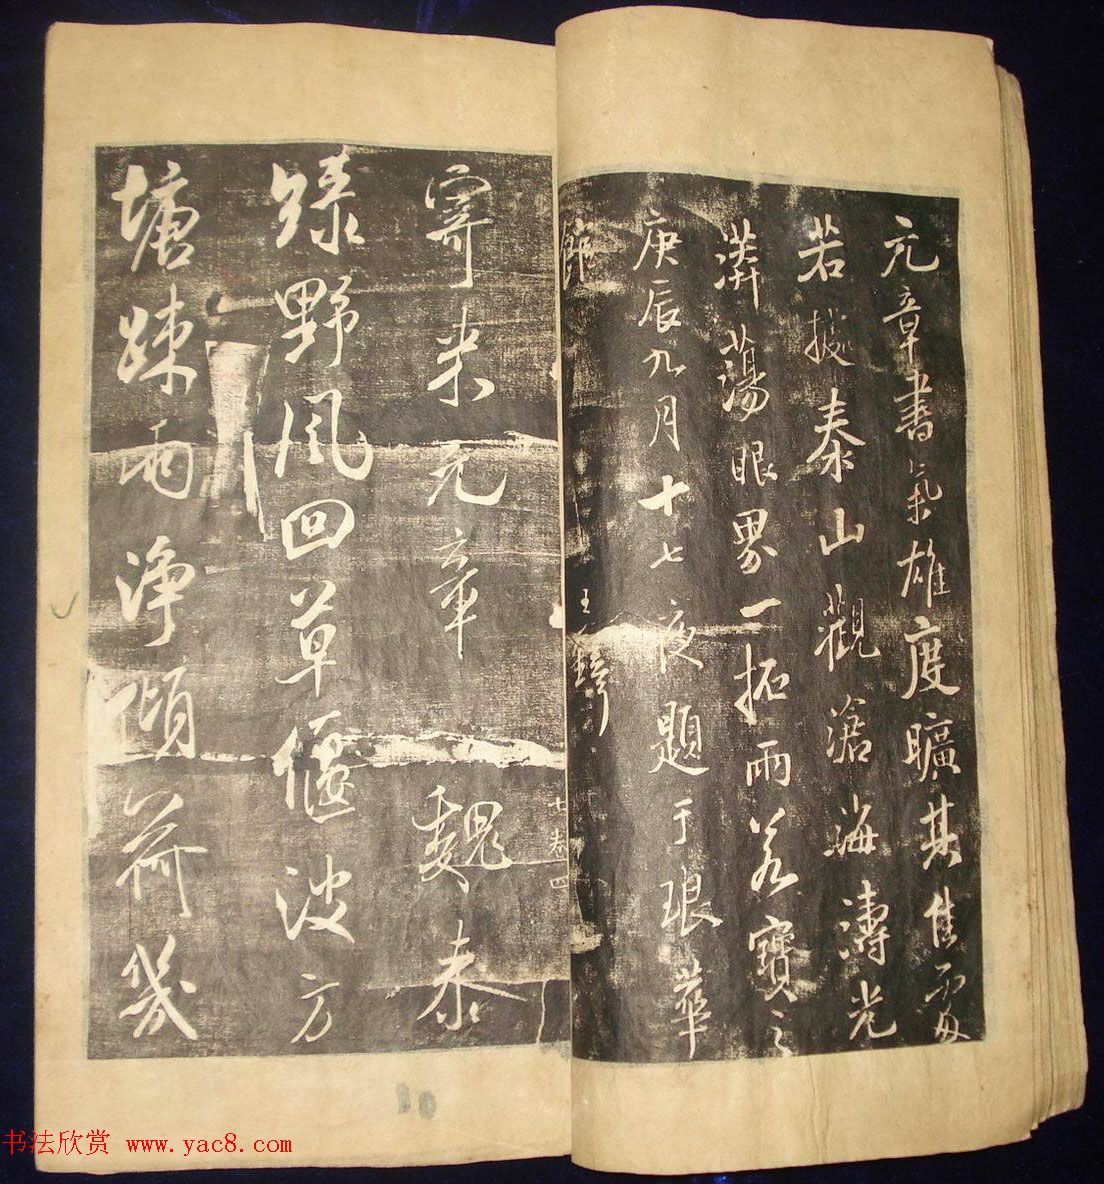 元章書氣雄度曠其佳處
若披泰山觀滄海濤光
漭蕩眼界一拓雨若寶之
庚辰九月十七夜題于琅華
館 王鐸
七卷四
寄米元章 魏泰
綠野風回草偃波方
塘疎雨淨傾荷幾
10
书法欣赏 www.yac8.com